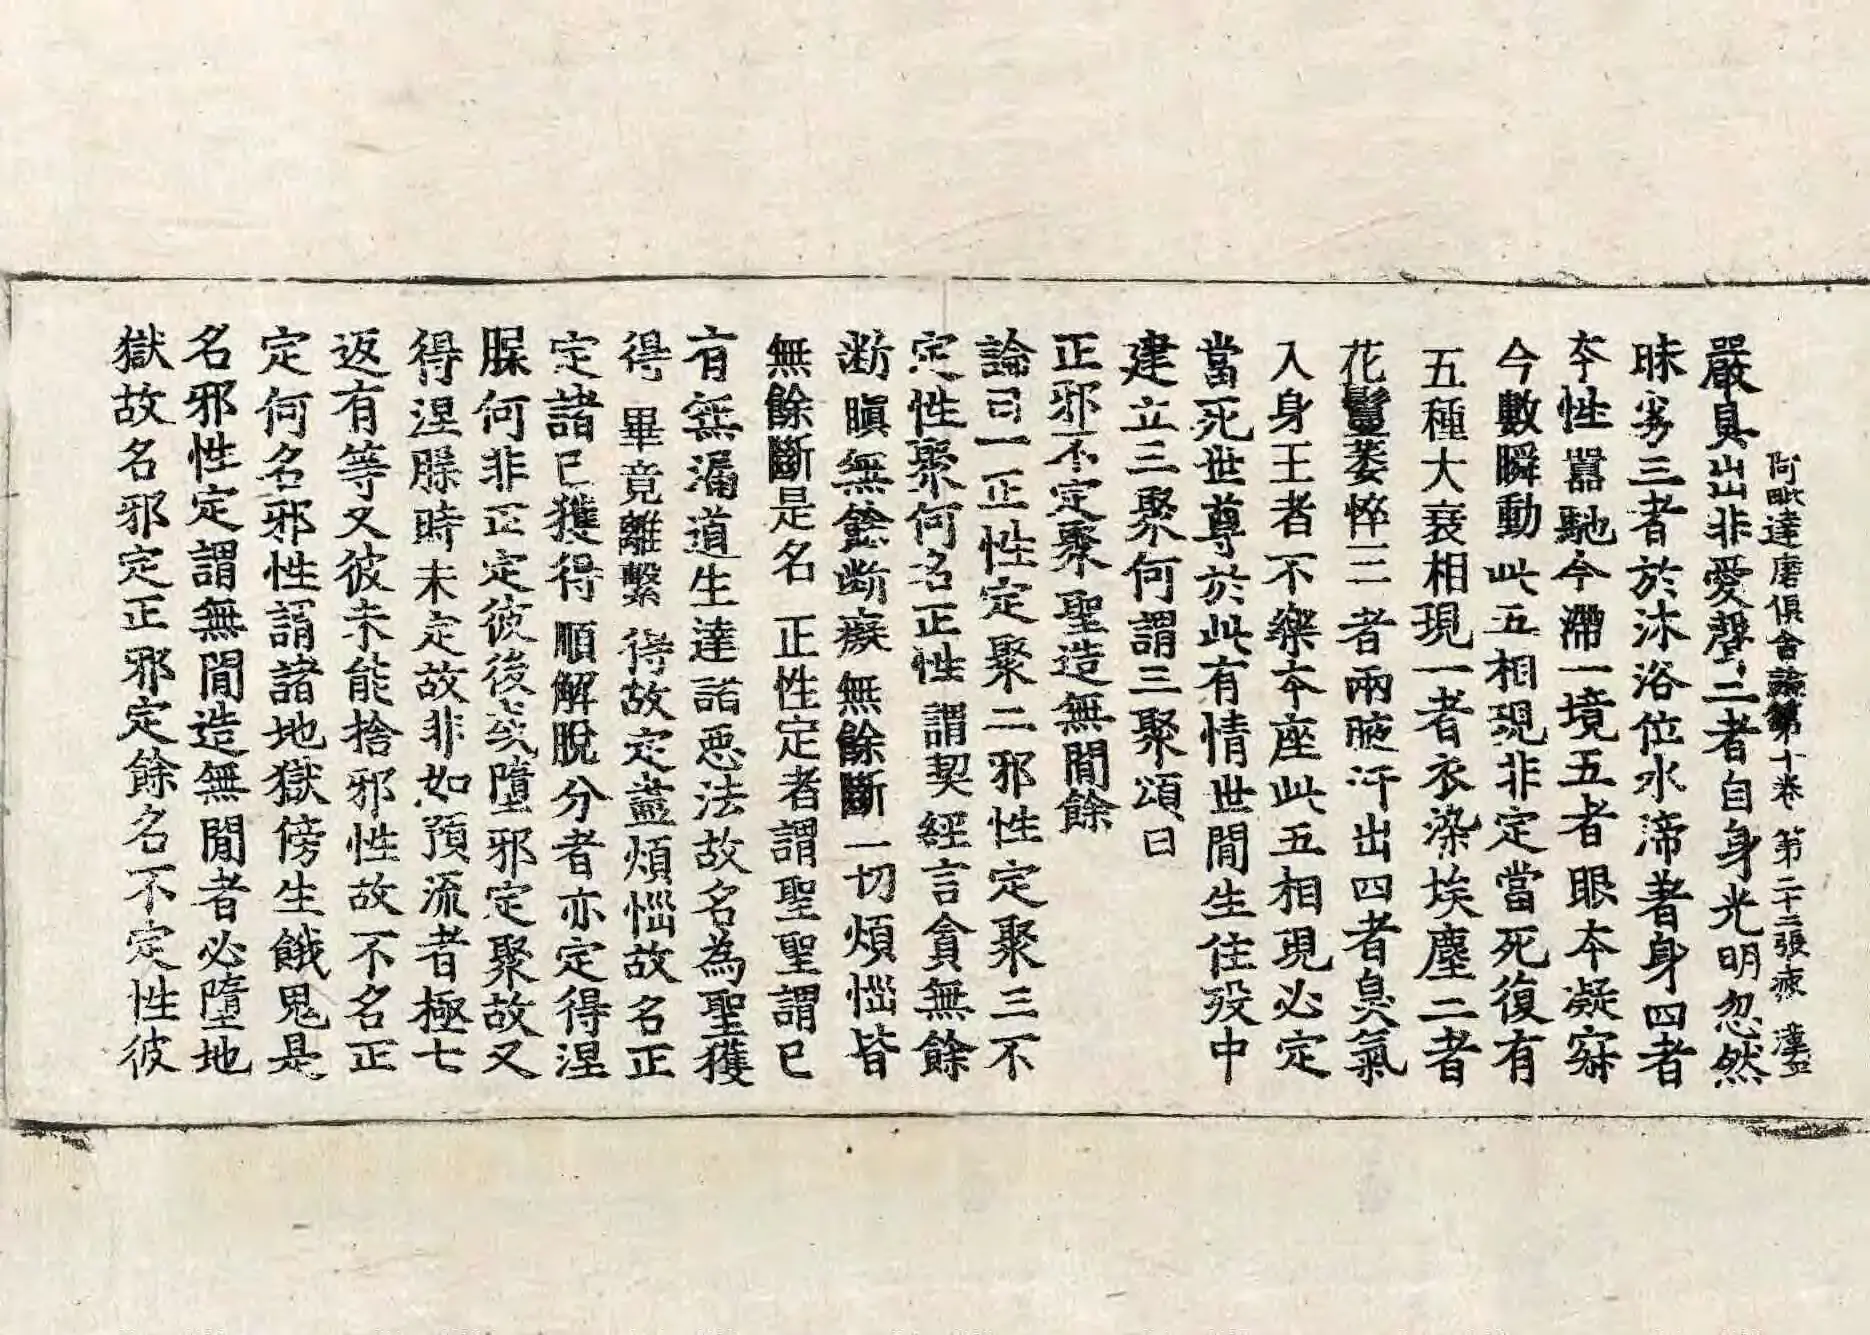 阿毗達磨俱舍論第十卷 第二十二張 疲
嚴具出非愛聲二者自身光明忽然
昧劣三者於沐浴位水渧著身四者
夲性囂馳今滯一境五者眼夲凝寂
今數瞬動此五相現非定當死復有
五種大衰相現一者衣染埃塵二者
花鬘萎悴三者兩腋汗出四者臭氣
入身五者不樂夲座此五相現必定
當死世尊於此有情世間生住歿中
建立三聚何謂三聚頌曰
正邪不定聚聖造無間餘
論曰一正性定聚二邪性定聚三不
定性聚何名正性謂契經言貪無餘
断瞋無餘断癡無餘斷一切煩惱皆
無餘斷是名正性定者謂聖聖謂已
有無漏道生遠諸惡法故名為聖獲
得畢竟離繫得故定盡煩惱故名正
定諸已獲得順解脫分者亦定得涅
槃何非正定彼後或墮邪定聚故又
得涅槃時未定故非如預流者極七
返有等又彼未能捨邪性故不名正
定何名邪性謂諸地獄傍生餓鬼是
名邪性定謂無間造無間者必墮地
獄故名邪定正邪定餘名不定性彼